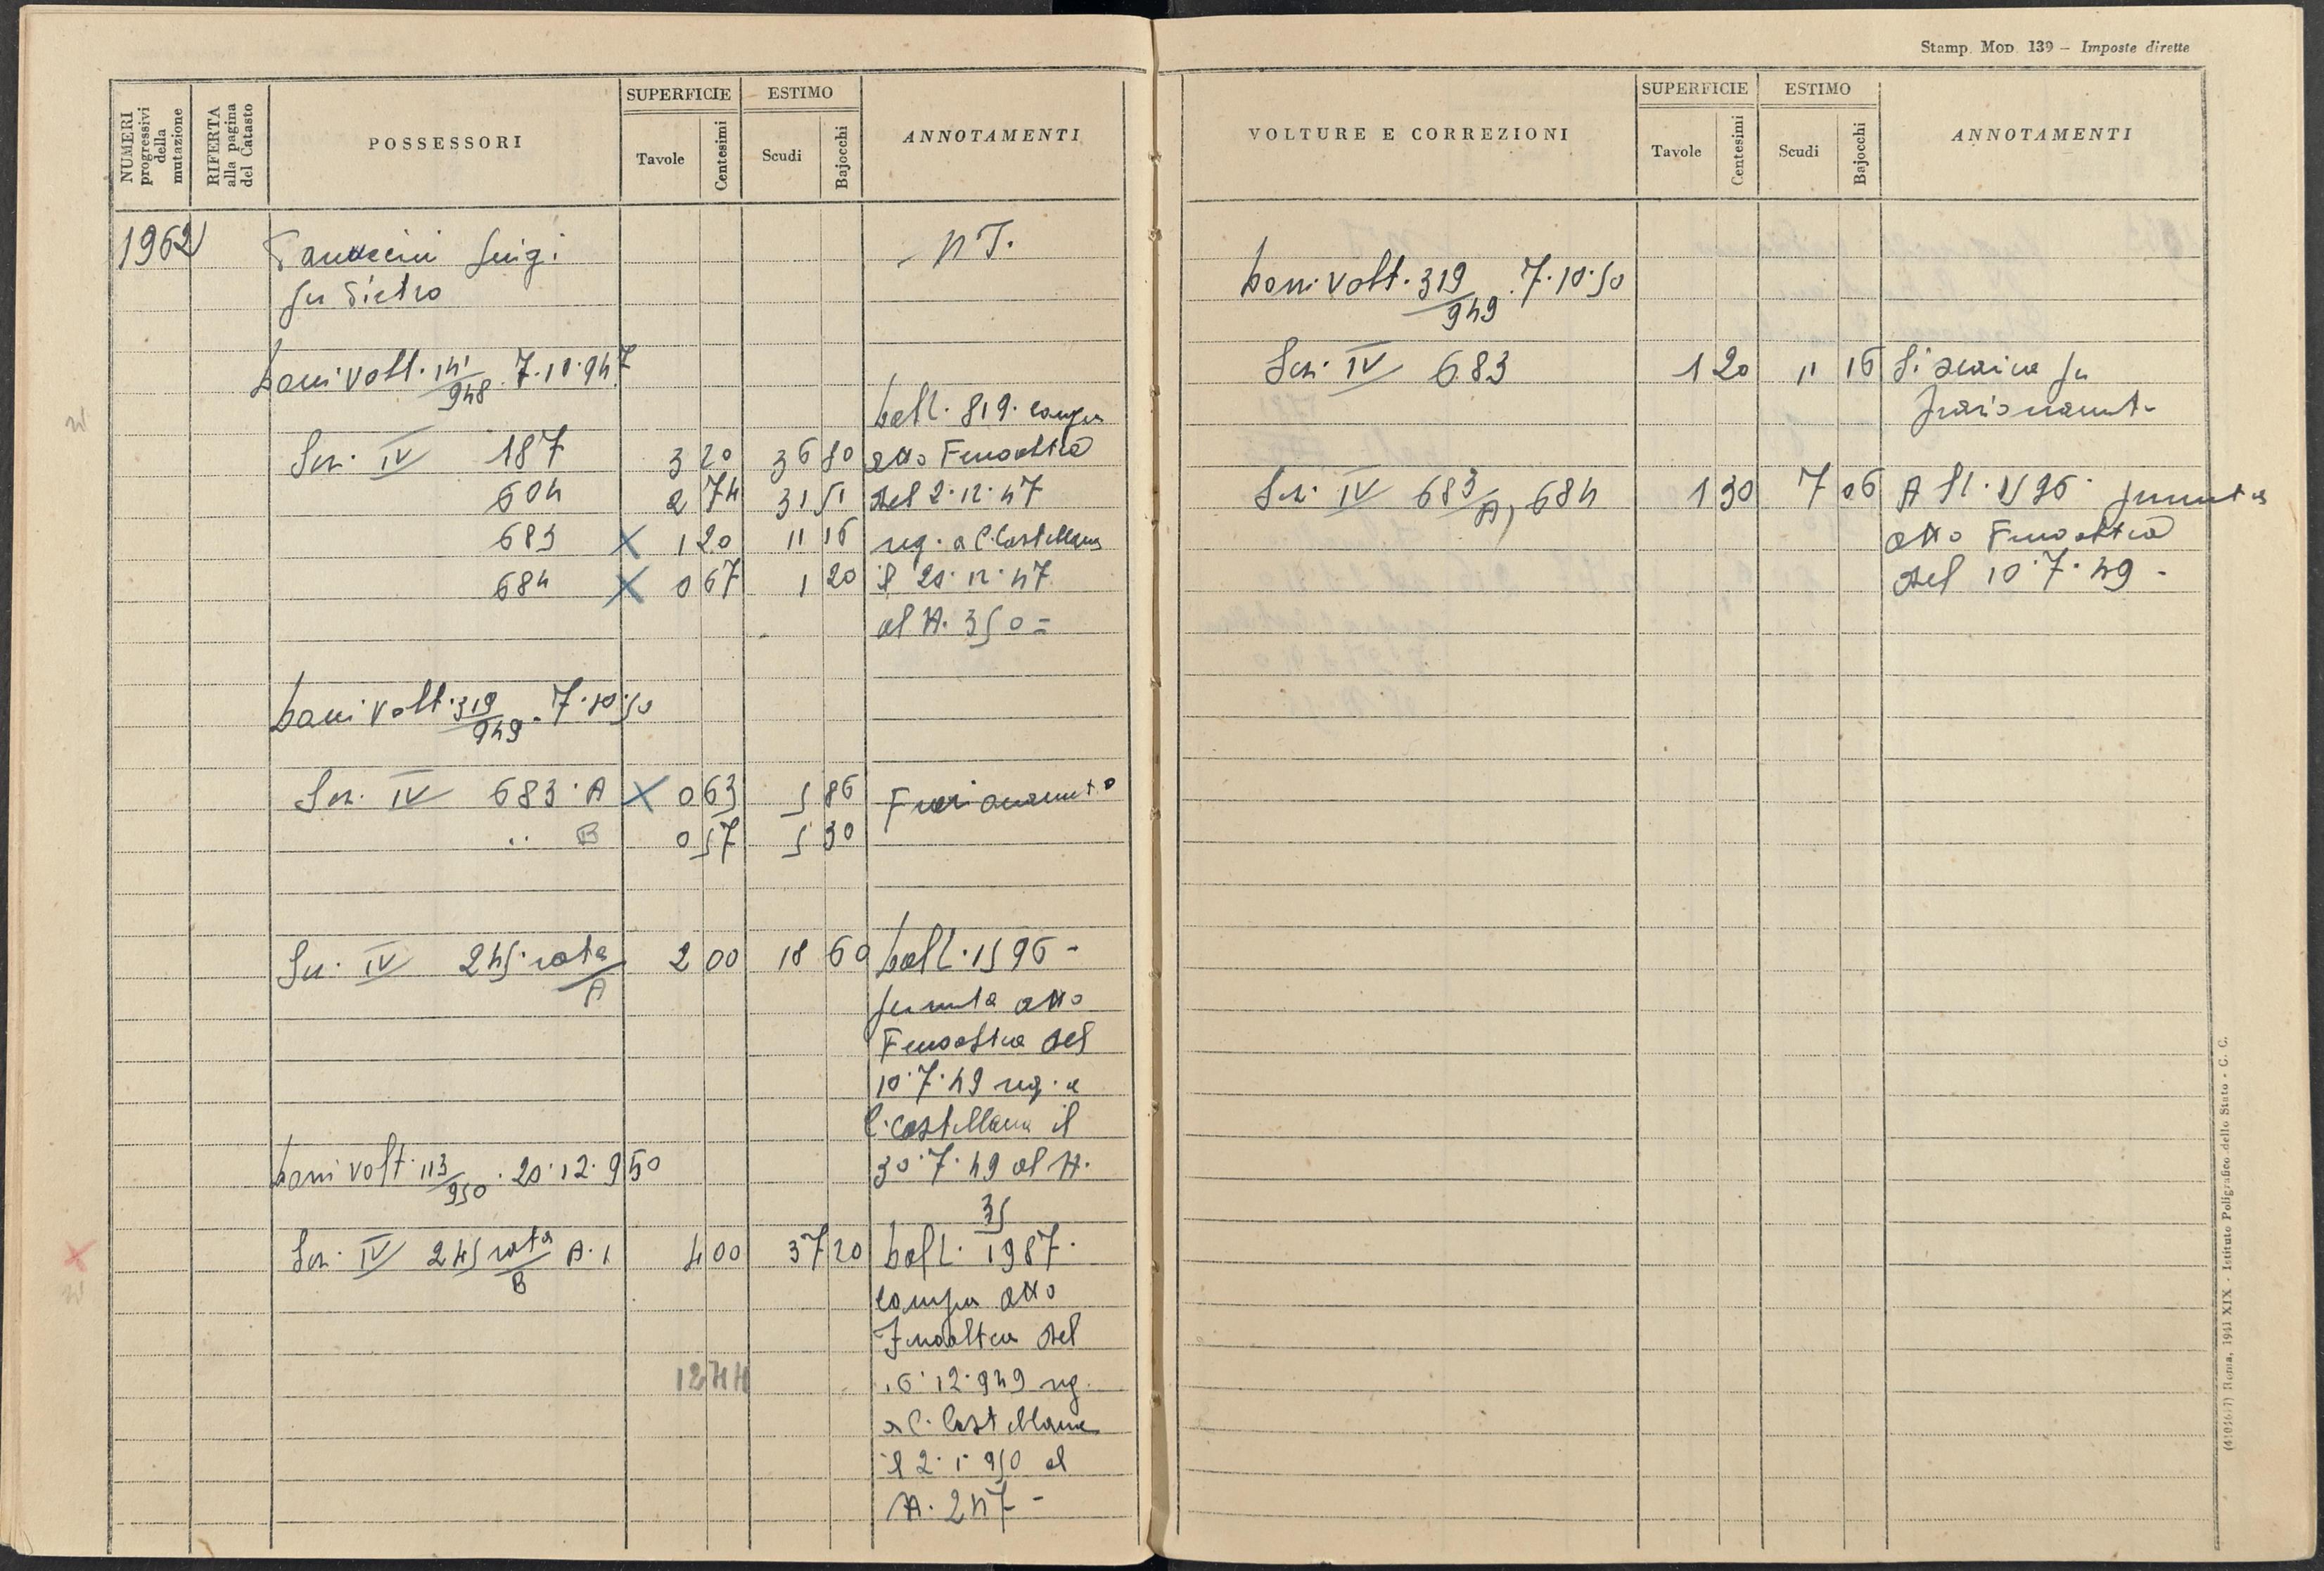 Stamp. Mod. 139 — Imposte dirette
NUMERI progressivi della mutazione
RIFERTA alla pagina del Catasto
POSSESSORI
SUPERFICIE
Tavole
Centesimi
ESTIMO
Scudi
Bajocchi
ANNOTAMENTI
1962
Luigi
fu Pietro
N T.
volt. 141/948. 7.10.947
Sez. IV 187 3 20 36 80
604 2 74 31 51
683 X 1 20 11 16
684 X 0 67 1 20
819.
atto
del 2.12.47
reg. a C. Castellana
il 20.12.47
al N. 350 =
volt. 319/949. 7.10.50
Sez. IV 683.A X 0 63 5 86
.. B 0 57 5 30
Frazionamento
Sez. IV 245 rata/A 2 00 18 60
1596 -
permuta atto
del
10.7.49 reg. a
C. Castellana il
30.7.49 al N.
35
volt. 113/950. 20.12.950
Sez. IV 245 rata/B A.1 4 00 37 20
1987.
compra atto
del
16.12.949 reg.
a C. Castellana
il 2.1.950 al
N. 247 -
12 44
VOLTURE E CORREZIONI
SUPERFICIE
Tavole
Centesimi
ESTIMO
Scudi
Bajocchi
ANNOTAMENTI
volt. 319/949. 7.10.50
Sez. IV 683 1 20 11 16 Si scarica per
frazionament.
Sez. IV 683/A, 684 1 30 7 06 A 1596. permuta
atto
del 10.7.49 -
Roma, 1941 XIX - Istituto Poligrafico dello Stato - G. C.